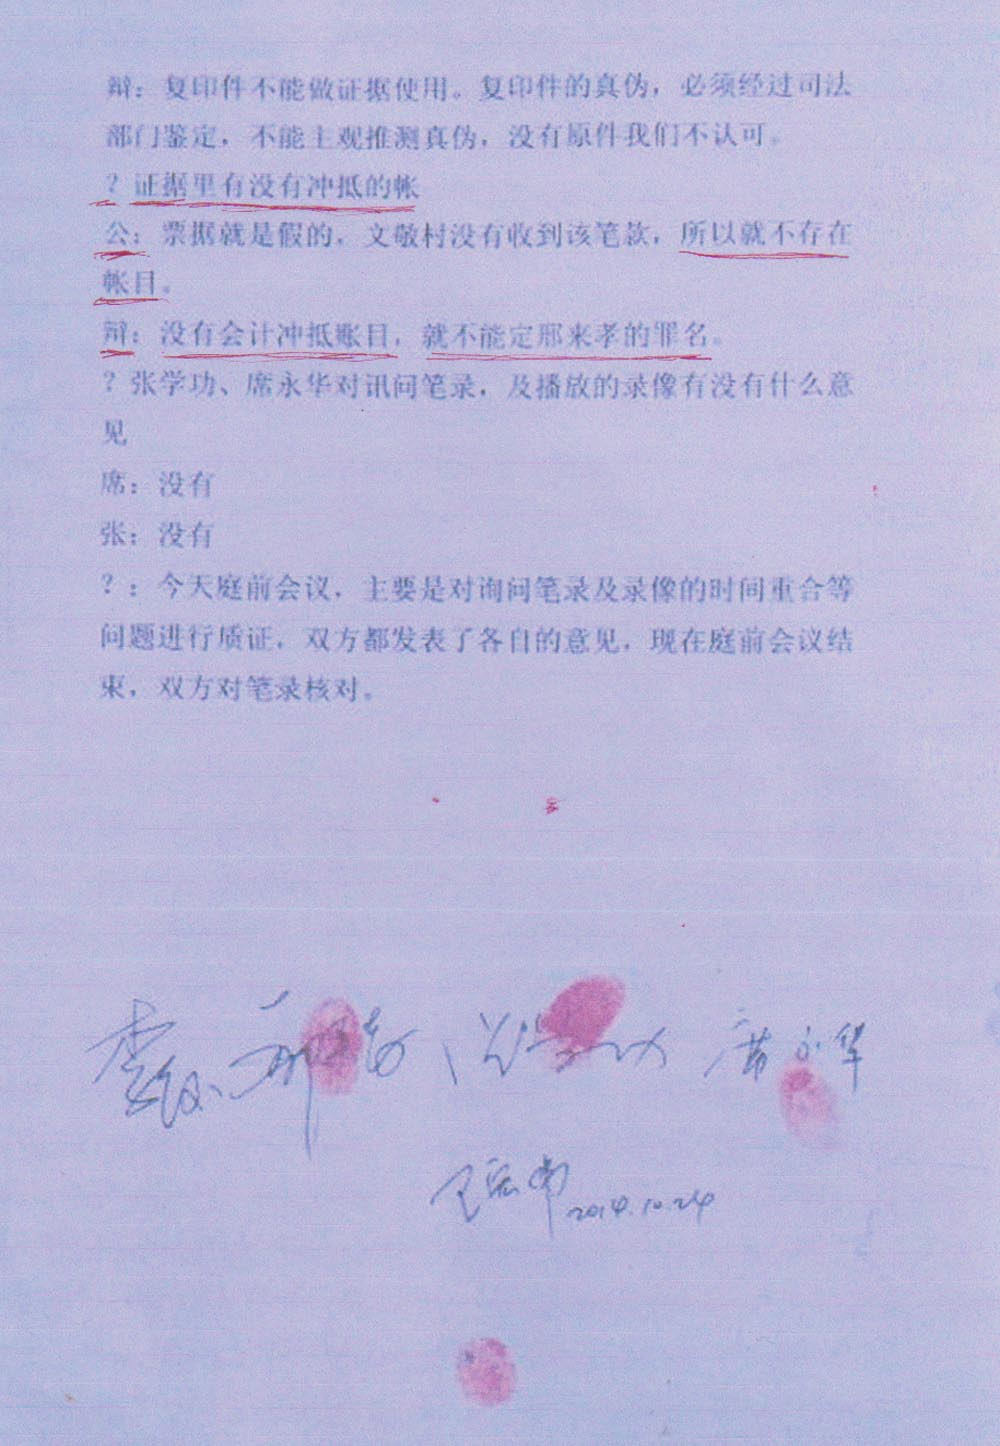 辩：复印件不能做证据使用。复印件的真伪，必须经过司法
部门鉴定，不能主观推测真伪，没有原件我们不认可。
？证据里有没有冲抵的帐
公：票据就是假的，文敬村没有收到该笔款，所以就不存在
帐目。
辩：没有会计冲抵账目，就不能定邢来孝的罪名。
？张学功、席永华对讯问笔录，及播放的录像有没有什么意
见
席：没有
张：没有
？：今天庭前会议，主要是对询问笔录及录像的时间重合等
问题进行质证，双方都发表了各自的意见，现在庭前会议结
束，双方对笔录核对。
席永华
2014.10.24